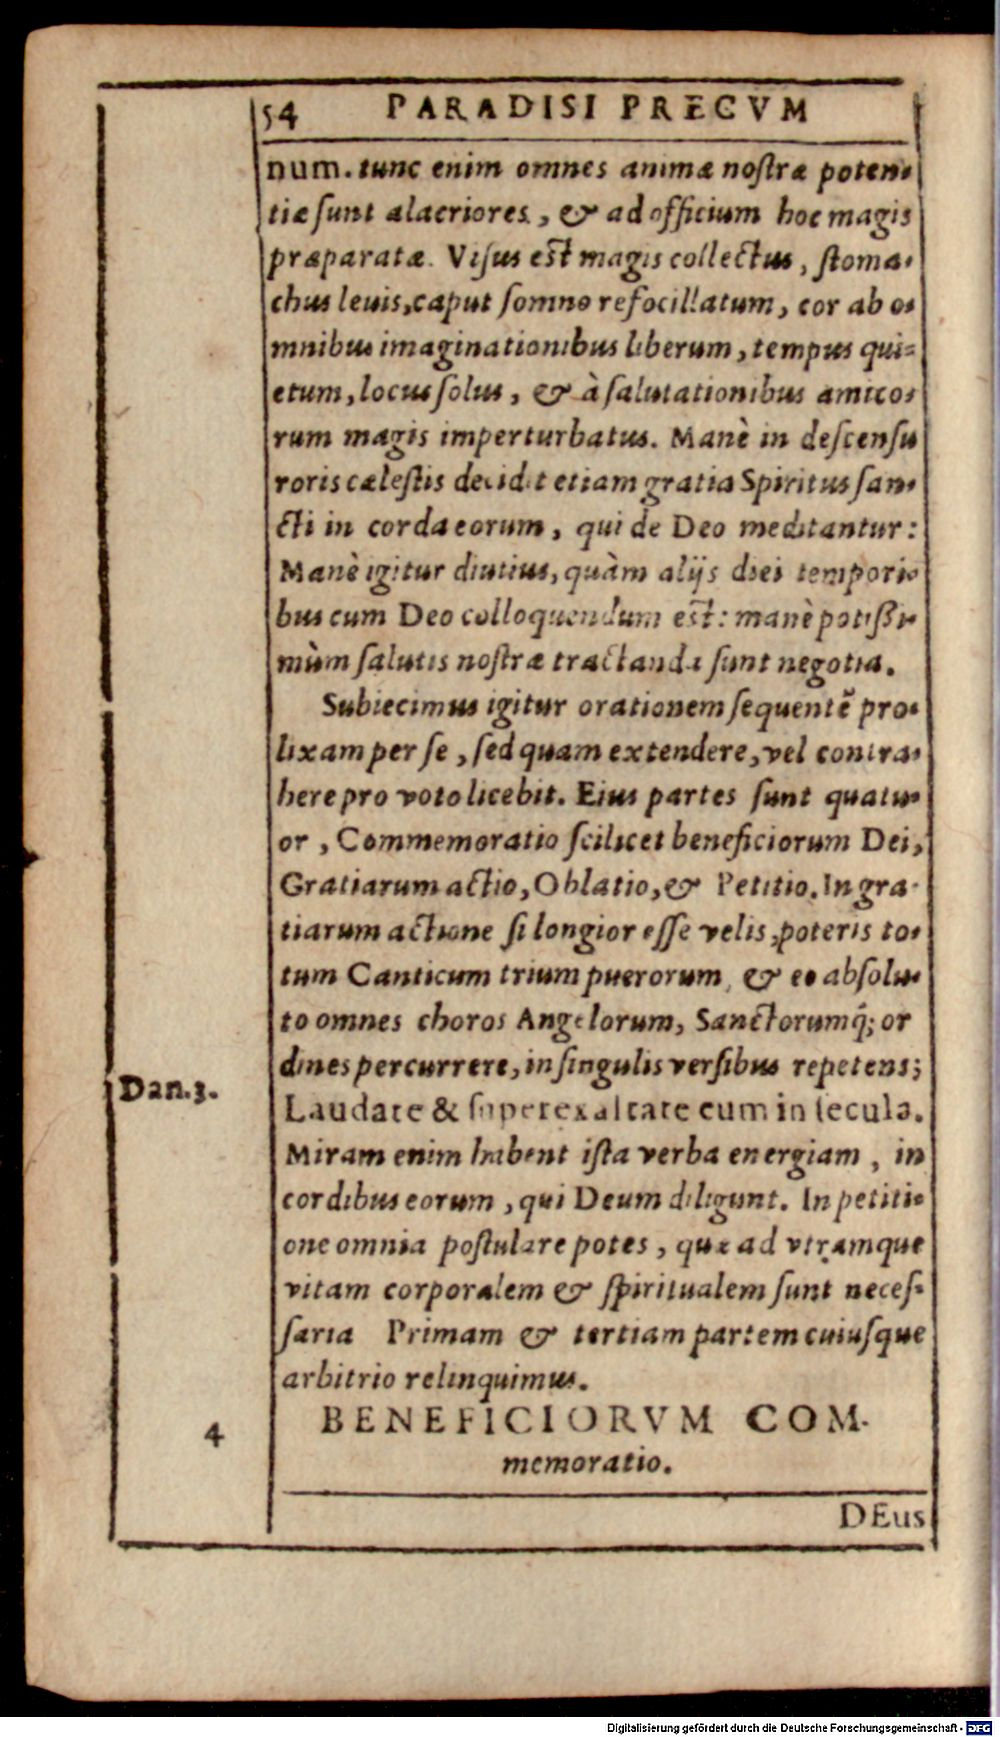 54 PARADISI PRECVM
num. tunc enim omnes animæ nostræ poten-
tiæ sunt alacriores, & ad officium hoc magis
præparatæ. Visus est magis collectus, stoma-
chus leuis, caput somno refocillatum, cor ab o-
mnibus imaginationibus liberum, tempus qui-
etum, locus solus, & à salutationibus amico-
rum magis imperturbatus. Manè in descensu
roris cælestis decidit etiam gratia Spiritus san-
cti in corda eorum, qui de Deo meditantur:
Manè igitur diutius, quàm alijs diei tempori-
bus cum Deo colloquendum est: manè potißi-
mùm salutis nostræ tractanda sunt negotia.
Subiecimus igitur orationem sequentẽ pro-
lixam per se, sed quam extendere, vel contra-
here pro voto licebit. Eius partes sunt quatu-
or, Commemoratio scilicet beneficiorum Dei,
Gratiarum actio, Oblatio, & Petitio. In gra-
tiarum actione si longior esse velis, poteris to-
tum Canticum trium puerorum, & eo absolu-
to omnes choros Angelorum, Sanctorumq́; or
dines percurrere, in singulis versibus repetens;
Dan.3.
Laudate & superexaltate eum in secula.
Miram enim habent ista verba energiam, in
cordibus eorum, qui Deum diligunt. In petiti-
one omnia postulare potes, quæ ad vtramque
vitam corporalem & spiritualem sunt neces-
saria Primam & tertiam partem cuiusque
arbitrio relinquimus.
4
BENEFICIORVM COM-
memoratio.
DEus
Digitalisierung gefördert durch die Deutsche Forschungsgemeinschaft - DFG